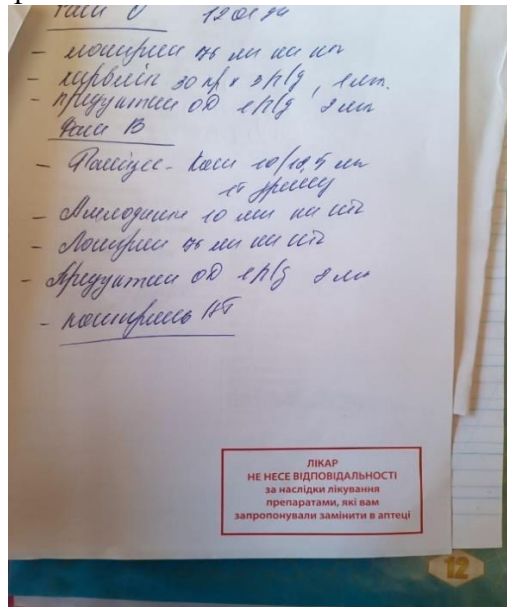 - лоспирин 75 мг на ніч
- карвелис 30 кр х 3 р/д, 1 міс.
- предуктал ОД 1 р/д 2 міс
- Рамізес - Комп 10/12,5 мг
1т зранку
- Амлодипін 10 мг на ніч
- Лоспирин 75 мг на ніч
- Предуктал ОД 1 р/д 2 міс
- контроль АТ
ЛІКАР
НЕ НЕСЕ ВІДПОВІДАЛЬНОСТІ
за наслідки лікування
препаратами, які вам
запропонували замінити в аптеці
12